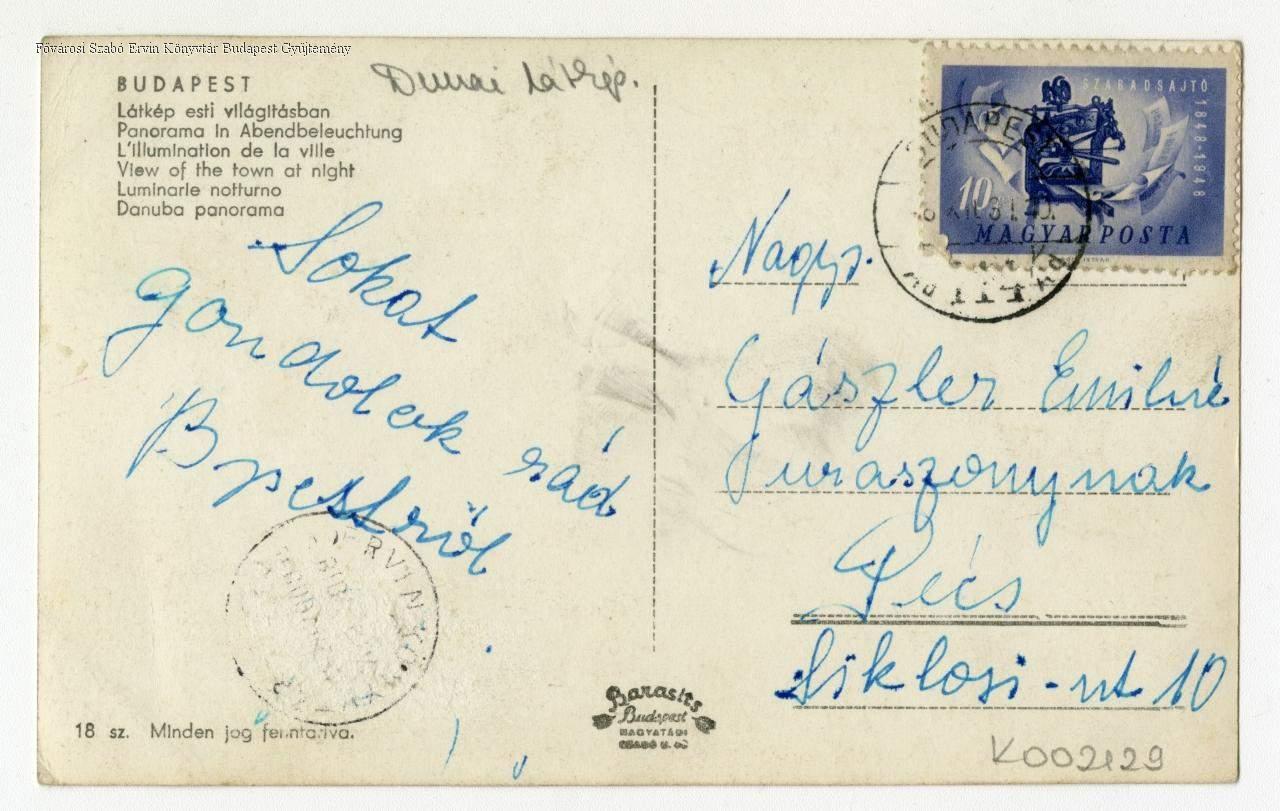 Fővárosi Szabó Ervin Könyvtár Budapest Gyűjtemény
BUDAPEST
Látkép esti világításban
Panorama in Abendbeleuchtung
L'illumination de la ville
View of the town at night
Luminarie notturno
Danuba panorama
Dunai látkép.
Sokat
gondolok rád
Bpestről
18 sz. Minden jog fenntartva.
Barasits
Budapest
MAGYATÁDI
SZABÓ U. 
SZABADSAJTÓ
1848-1948
10
MAGYAR POSTA
BUDAPEST
Nagys.
Gászler Emilné
uraszonynak
Pécs
Siklosi-ut 10
K002129